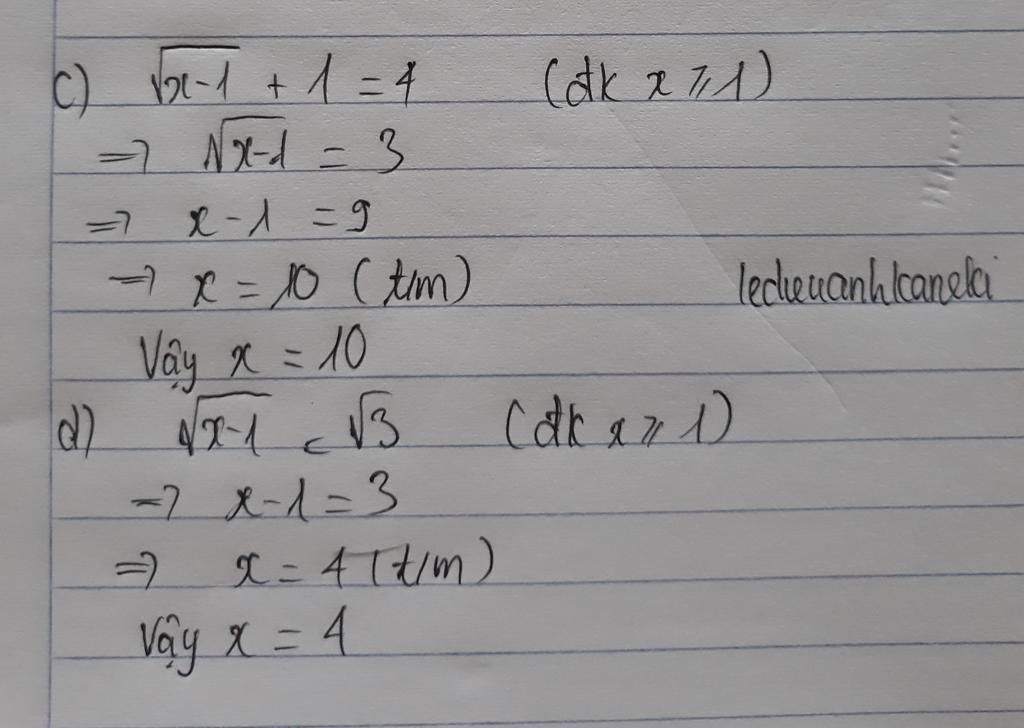 c) √(x-1) + 1 = 4 (đk x ⩾ 1)
=> √(x-1) = 3
=> x - 1 = 9
=> x = 10 (t/m)
ledieuanhkaneki
Vậy x = 10
d) √(x-1) = √3 (đk x ⩾ 1)
=> x - 1 = 3
=> x = 4 (t/m)
Vậy x = 4